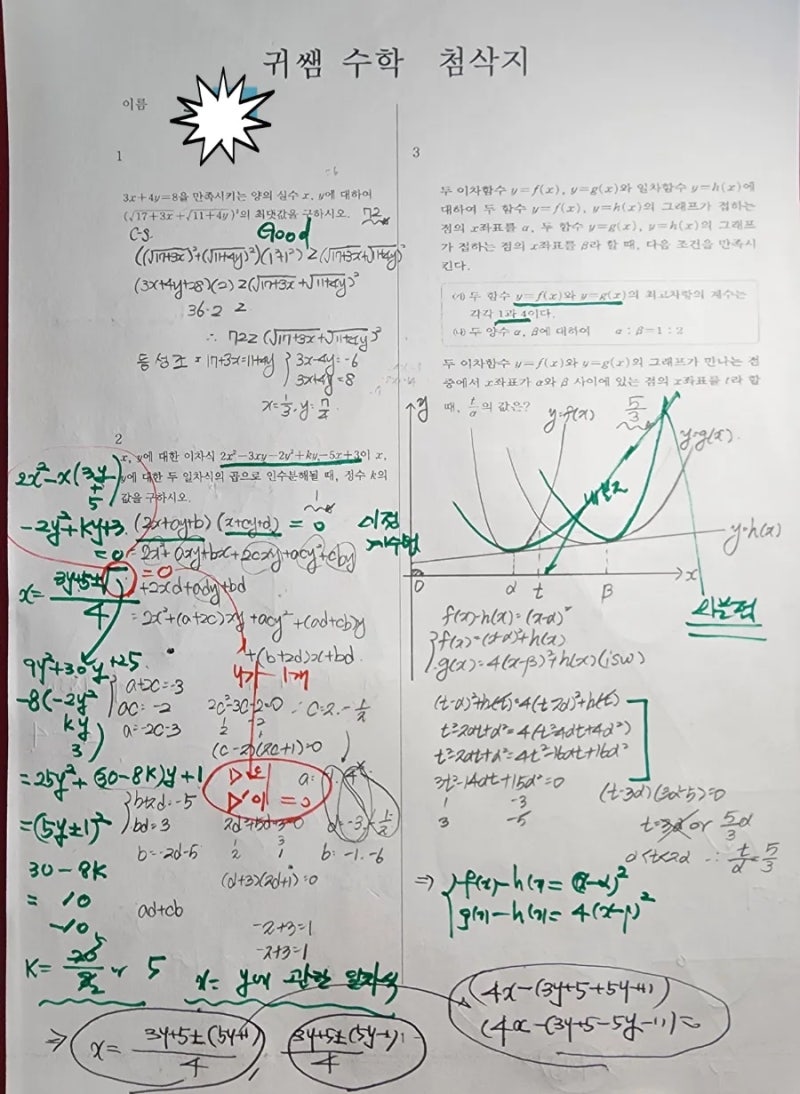 귀쌤 수학 첨삭지
이름
1
3x+4y=8을 만족시키는 양의 실수 x, y에 대하여
(√17+3x+√11+4y)²의 최댓값을 구하시오. 72
C-S. Good
((√17+3x)²+(√11+4y)²)(1²+1²)≥(√17+3x+√11+4y)²
(3x+4y+28)(2)≥(√17+3x+√11+4y)²
36·2 ≥
∴ 72≥(√17+3x+√11+4y)²
17+3x=11+4y
3x-4y=-6
3x+4y=8
x=1/3, y=7/4
2
x, y에 대한 이차식 2x²-3xy-2y²+ky-5x+3이 x,
y에 대한 두 일차식의 곱으로 인수분해될 때, 정수 k의
값을 구하시오.
1
2x²-x(3y+5)
-2y²+ky+3
=0
x=3y+5±√
4
(2x+ay+b)(x+cy+d)=0
=2x²+axy+bx+2cxy+acy²+cby
=0
+2xd+ady+bd
=2x²+(a+2c)xy+acy²+(ad+cb)y
+(b+2d)x+bd
계수법
a+2c=-3
ac=-2
a=-2c-3
2c²-3c-2=0 ∴c=2, -1/2
(c-2)(2c+1)=0
D
D'이=0
9y²+30y+25
-8(-2y²
ky
3)
=25y²+(30-8k)y+1
=(5y±1)²
30-8k
=10
-10
b+2d=-5
bd=3
b=-2d-5
(d+3)(2d+1)=0
b=-1, -6
ad+cb
-2+3=1
-2+3=1
k=20/8 or 5
x=y에 관한 일차식
⇒ x=3y+5±(5y+1)
4
3y+5±(5y-1)
4
(4x-(3y+5+5y+1))
(4x-(3y+5-5y-1))=0
3
두 이차함수 y=f(x), y=g(x)와 일차함수 y=h(x)에
대하여 두 함수 y=f(x), y=h(x)의 그래프가 접하는
점의 x좌표를 α, 두 함수 y=g(x), y=h(x)의 그래프
가 접하는 점의 x좌표를 β라 할 때, 다음 조건을 만족시
킨다.
(가) 두 함수 y=f(x)와 y=g(x)의 최고차항의 계수는
각각 1과 4이다.
(나) 두 양수 α, β에 대하여 α : β=1 : 2
두 이차함수 y=f(x)와 y=g(x)의 그래프가 만나는 점
중에서 x좌표가 α와 β 사이에 있는 점의 x좌표를 t라 할
때, t/α의 값은?
5/3
y
y=f(x)
y=g(x)
내분점
y=h(x)
0 α t β x
외분점
f(x)-h(x)=(x-α)²
f(x)=(x-α)²+h(x)
g(x)=4(x-β)²+h(x)
(t-α)²+h(t)=4(t-2α)²+h(t)
t²-2αt+α²=4(t²-4αt+4α²)
t²-2αt+α²=4t²-16αt+16α²
3t²-14αt+15α²=0
1 -3
3 -5
(t-3α)(3t-5α)=0
t=3α or 5/3α
α<t<2α ∴ t/α=5/3
⇒ f(x)-h(x)=(x-α)²
g(x)-h(x)=4(x-β)²